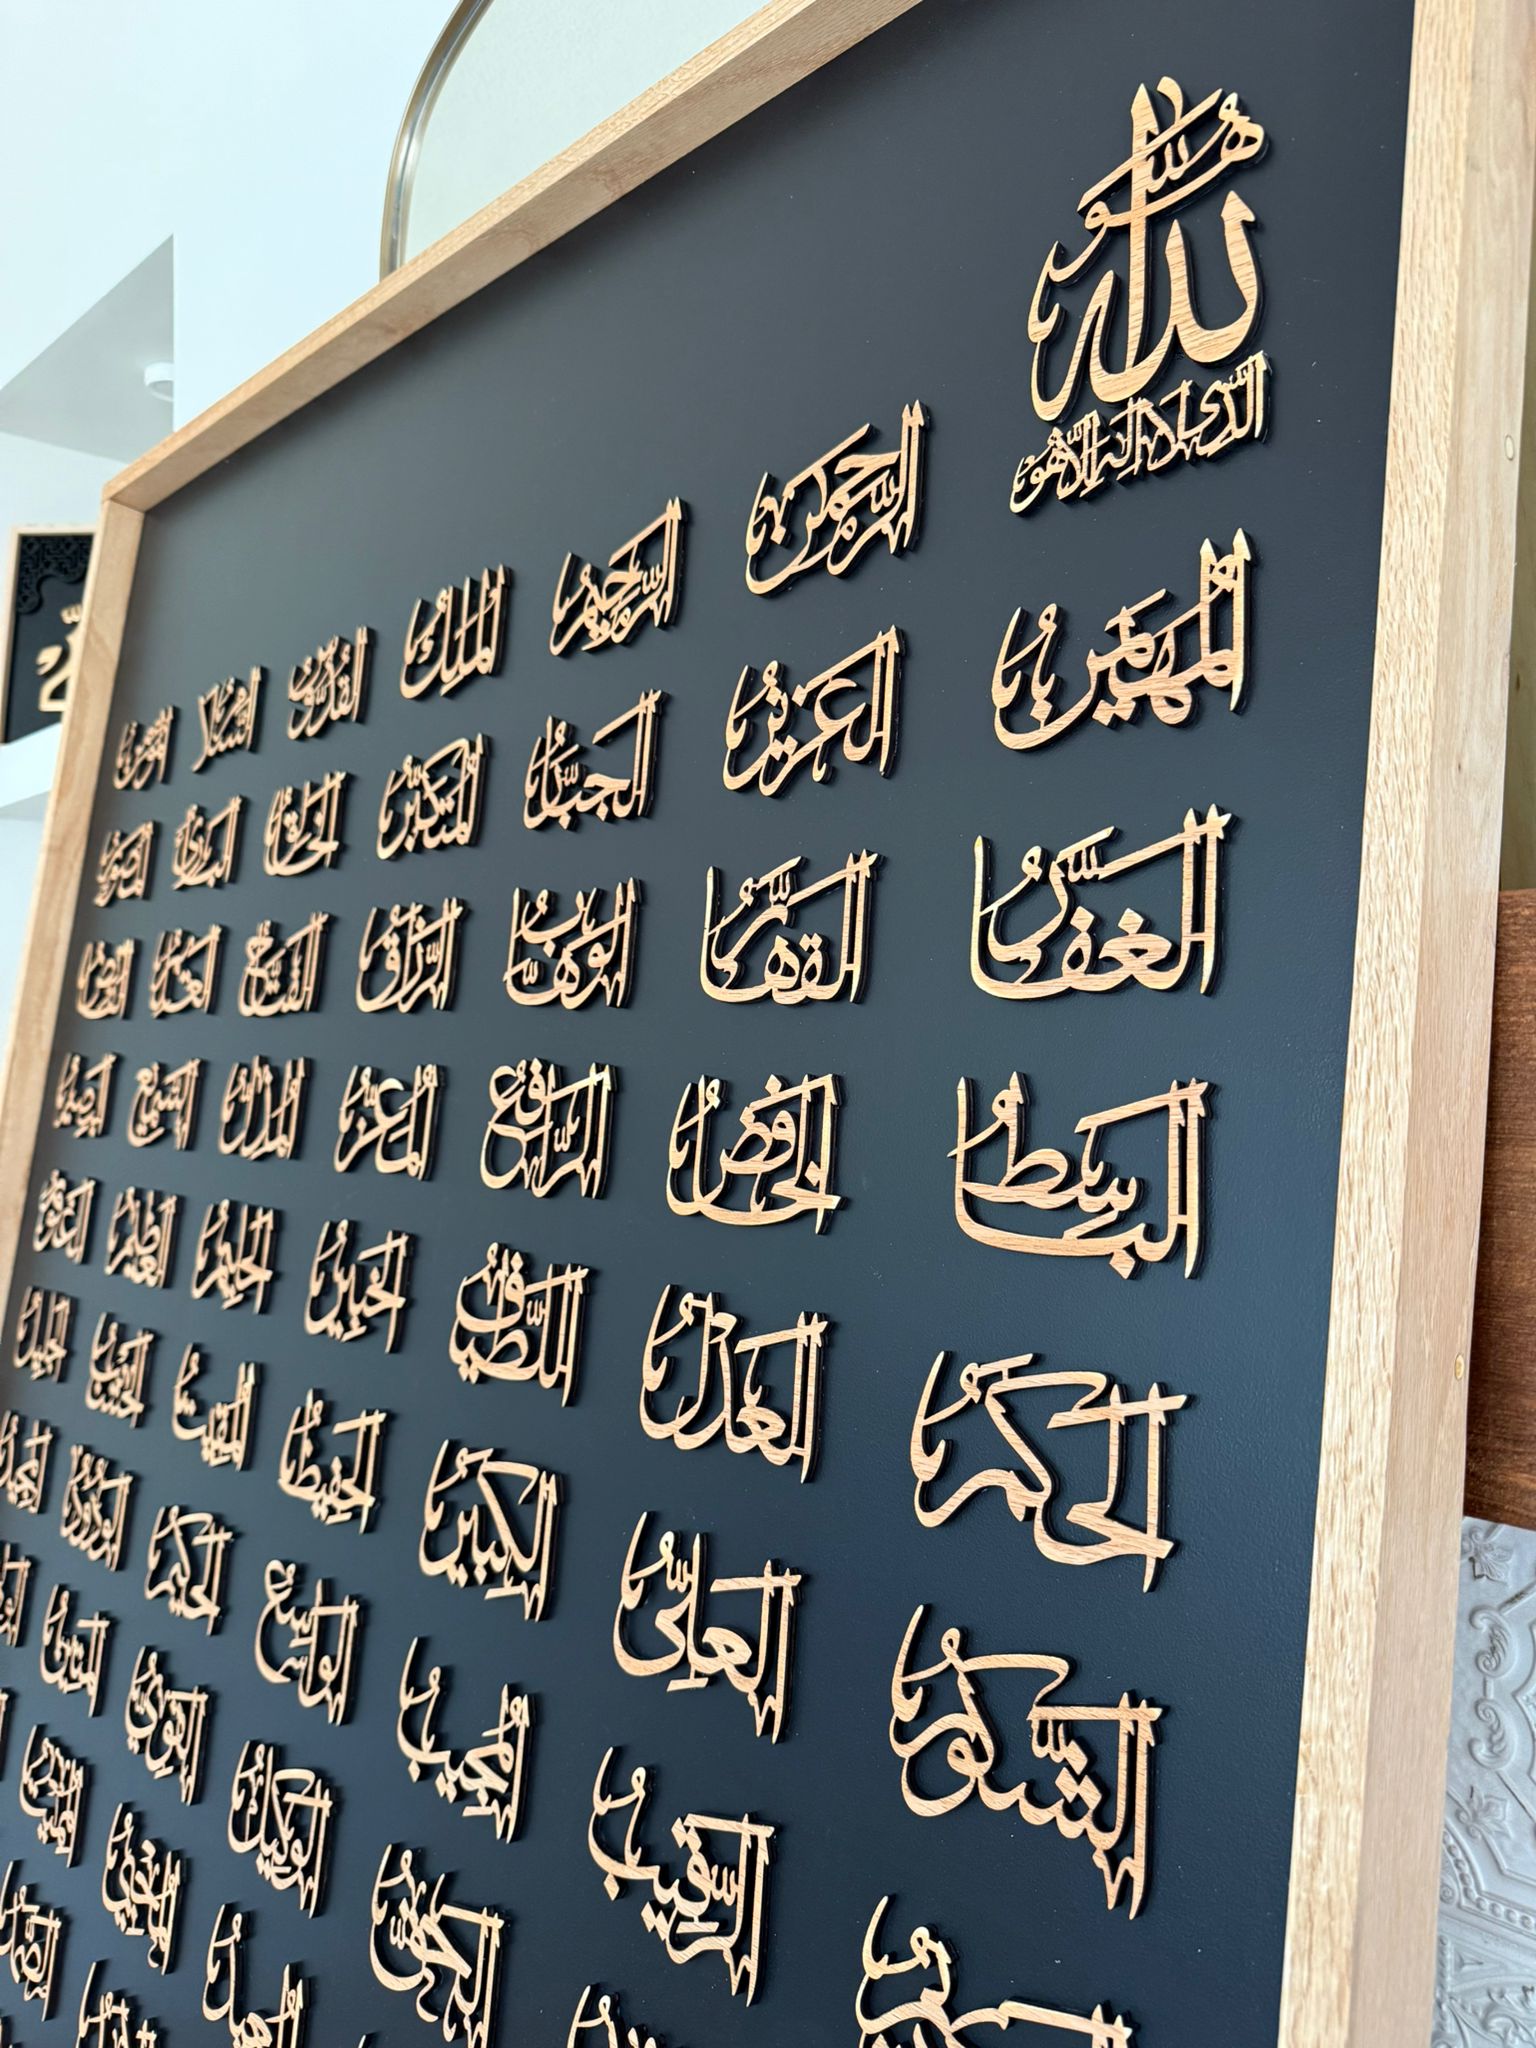 هو الله الذي لا إله إلا هو
الرحمن الرحيم الملك القدوس السلام المؤمن
المهيمن العزيز الجبار المتكبر الخالق البارئ المصور
الغفار القهار الوهاب الرزاق الفتاح العليم القابض
الباسط الخافض الرافع المعز المذل السميع البصير
الحكم العدل اللطيف الخبير الحليم العظيم الغفور
الشكور العلي الكبير الحفيظ المقيت الحسيب الجليل
الرقيب المجيب الواسع الحكيم الودود المجيد
الحق الوكيل القوي المتين